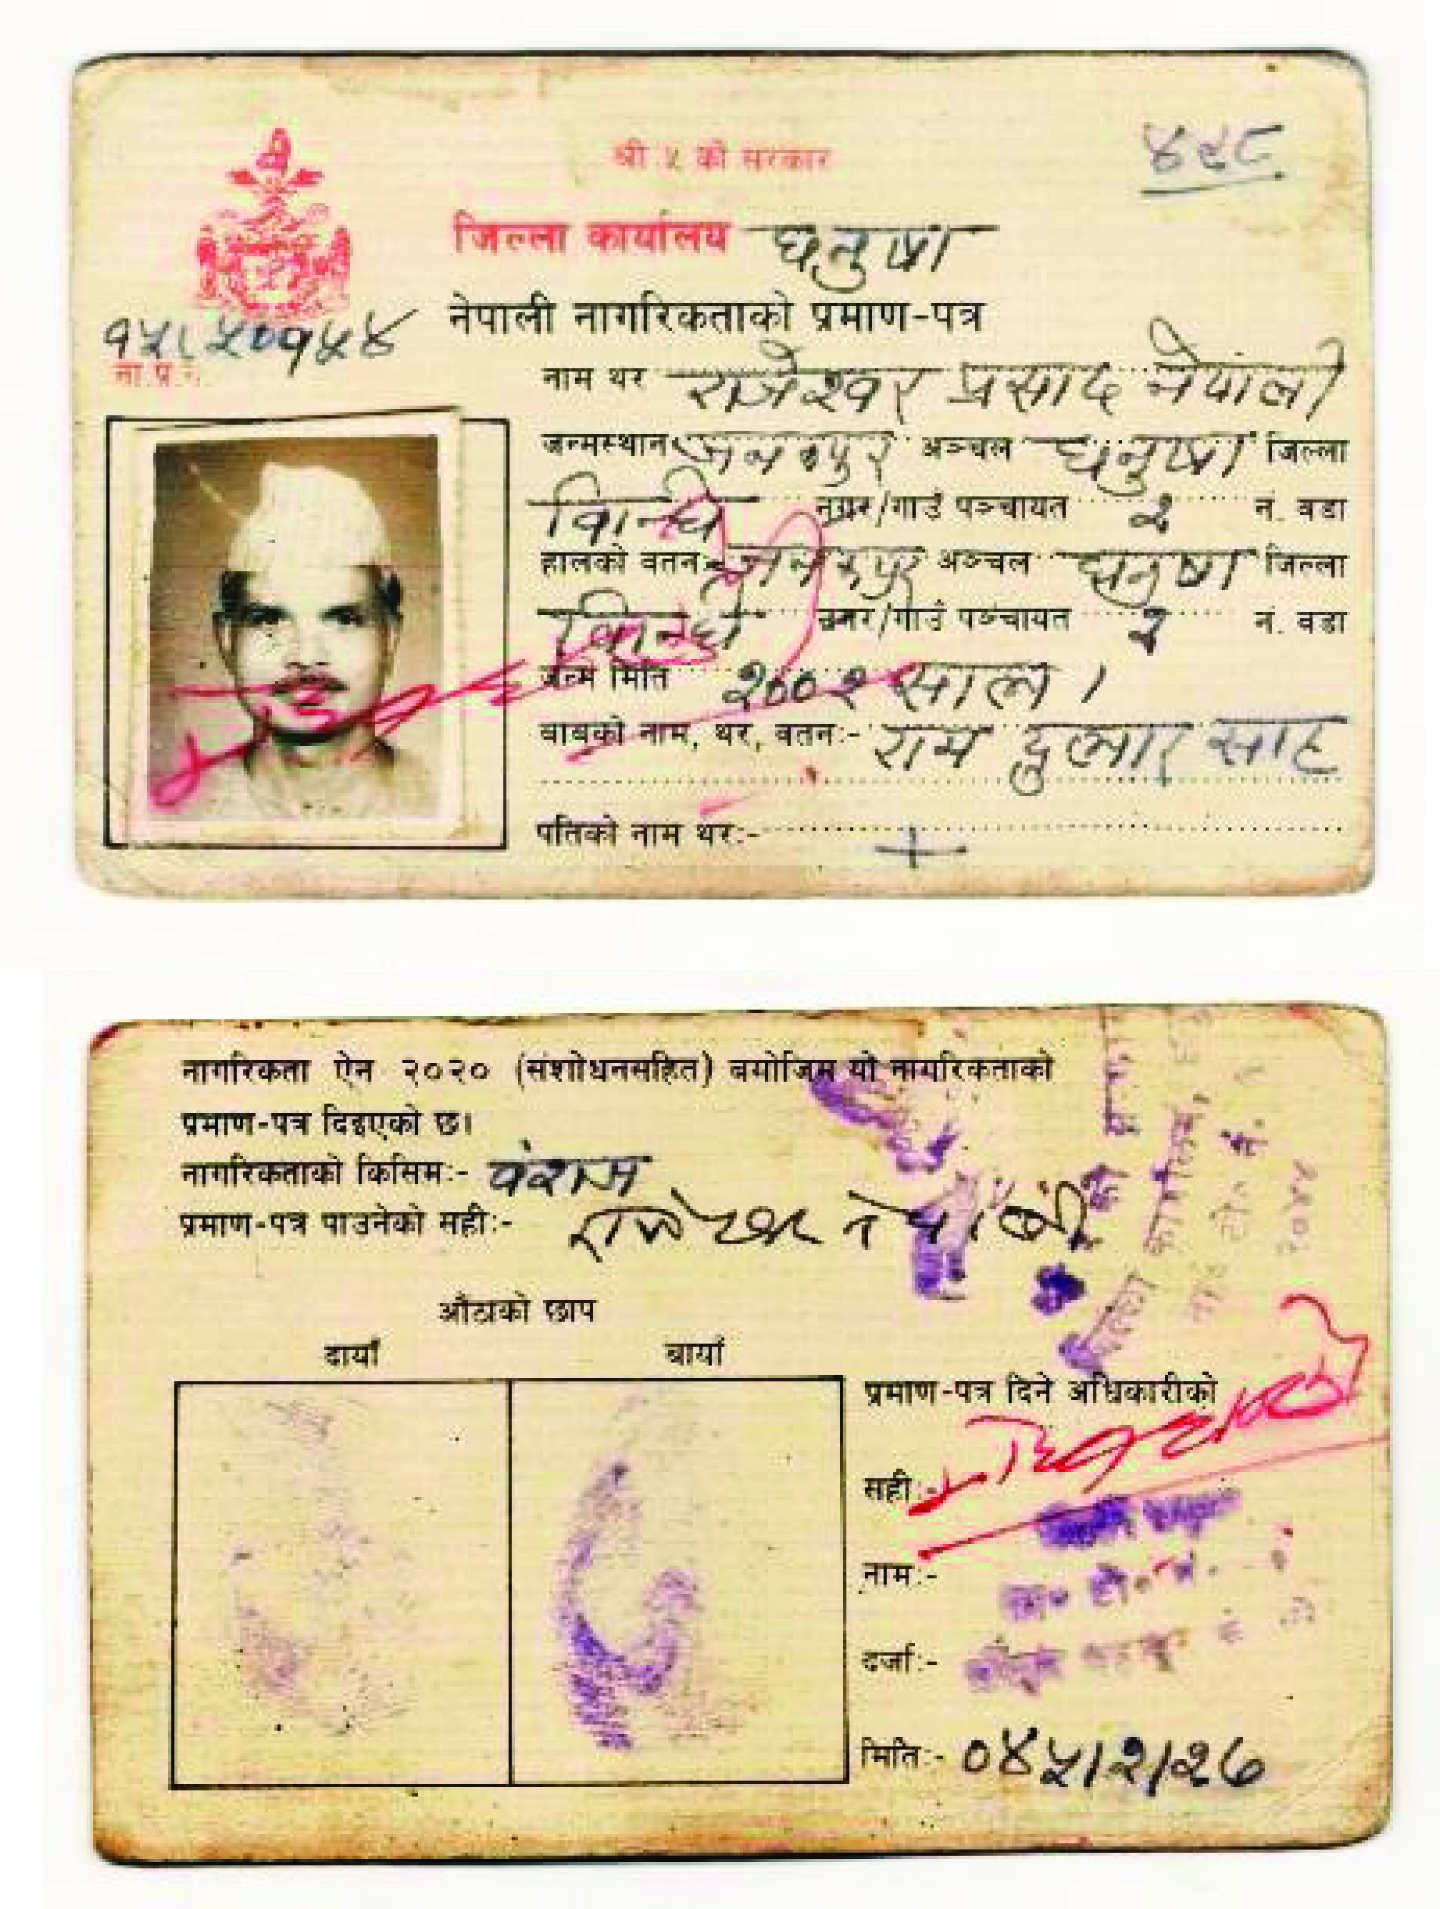 ४९८
श्री ५ को सरकार
जिल्ला कार्यालय धनुषा
नेपाली नागरिकताको प्रमाण-पत्र
ना.प्र.नं.
नाम थर राजेश्वर प्रसाद नेपाली
जन्मस्थान जनकपुर अञ्चल धनुषा जिल्ला
विन्धि नगर/गाउं पञ्चायत २ न. वडा
हालको वतन:- जनकपुर अञ्चल धनुषा जिल्ला
विन्धि नगर/गाउं पञ्चायत २ न. वडा
जन्म मिति २००२ साल।
बाबुको नाम, थर, वतन:- राम दुलार साह
पतिको नाम थर:-
नागरिकता ऐन २०२० (संशोधनसहित) बमोजिम यो नागरिकताको
प्रमाण-पत्र दिइएको छ।
नागरिकताको किसिम:- वंशज
प्रमाण-पत्र पाउनेको सही:- राजेश्वर नेपाली
औंठाको छाप
दायाँ बायाँ
प्रमाण-पत्र दिने अधिकारीको
सही:-
नाम:-
दर्जा:-
मिति:- ०४५/२/२७